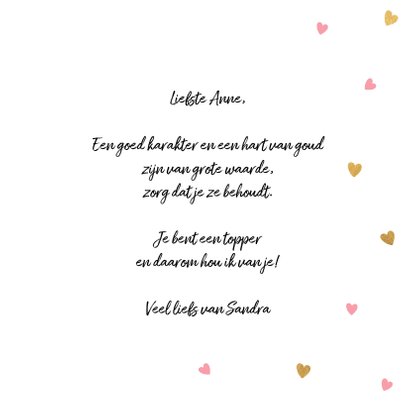 Liefste Anne,
Een goed karakter en een hart van goud
zijn van grote waarde,
zorg dat je ze behoudt.
Je bent een topper
en daarom hou ik van je!
Veel liefs van Sandra